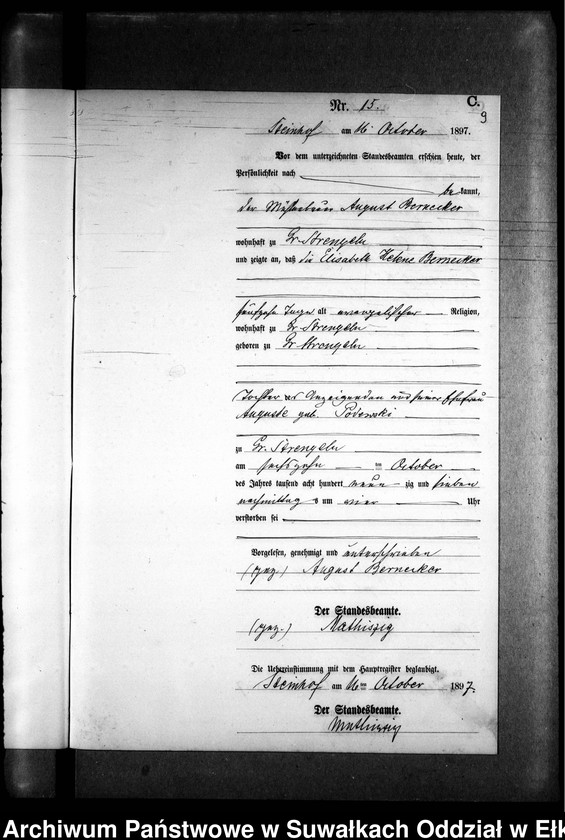 C.
Nr. 15.
9
Steinhof am 16 October 1897.
Vor dem unterzeichneten Standesbeamten erschien heute, der
Persönlichkeit nach
be kannt,
der August Bernecker
wohnhaft zu Gr. Strengeln
und zeigte an, daß die Elisabeth Helene Bernecker
fünfzehn Tage alt evangelischer Religion,
wohnhaft zu Gr. Strengeln
geboren zu Gr. Strengeln
Tochter des Anzeigenden und seiner Ehefrau
Auguste geb. Podewski
zu Gr. Strengeln
am sechszehn ten October
des Jahres tausend acht hundert neun zig und sieben
nachmittag s um vier Uhr
verstorben sei
Vorgelesen, genehmigt und unterschrieben
(gez.) August Bernecker
Der Standesbeamte.
(gez.) Mathiszig
Die Uebereinstimmung mit dem Hauptregister beglaubigt.
Steinhof am 16ten October 1897.
Der Standesbeamte.
Mathiszig
Archiwum Państwowe w Suwałkach Oddział w Ełk